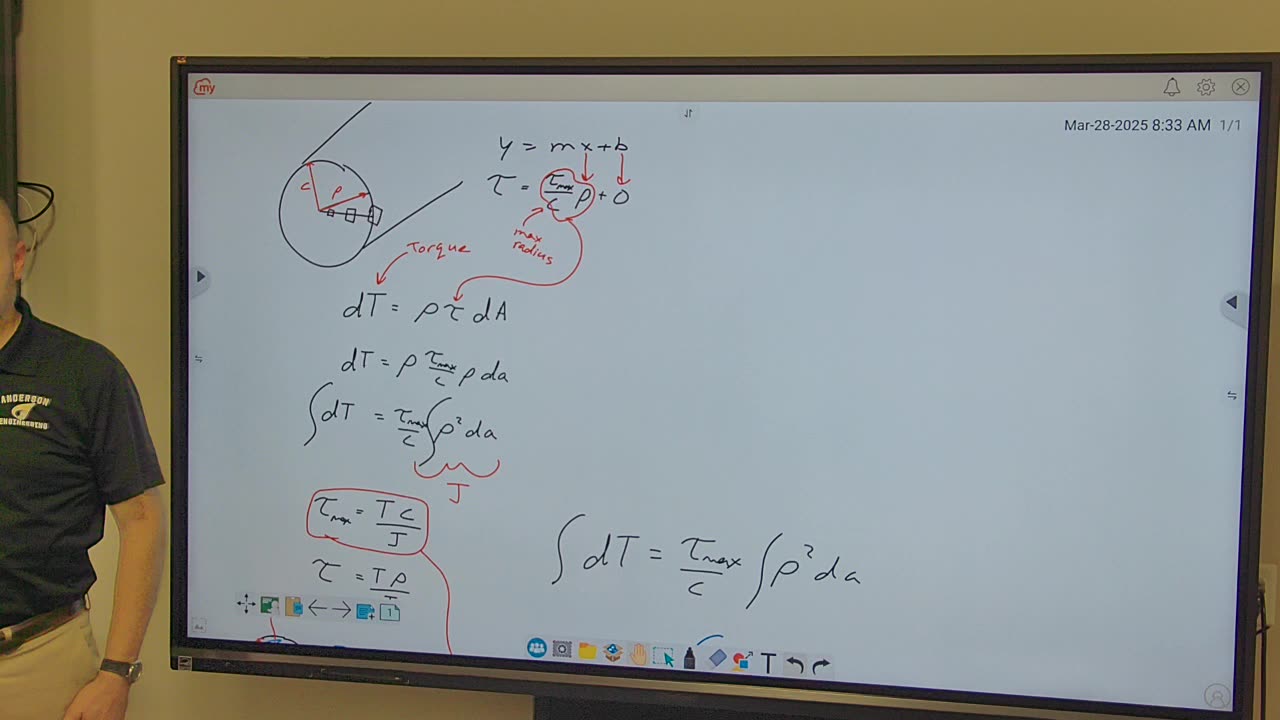 my
Mar-28-2025 8:33 AM 1/1
y = mx+b
τ = τmax/c ρ + 0
c
ρ
max radius
Torque
dT = ρ τ dA
dT = ρ τmax/c ρ da
∫dT = τmax/c ∫ρ² da
J
τmax = Tc/J
τ = Tρ/J
∫dT = τmax/c ∫ρ² da
ANDERSON
ENGINEERING
1
T